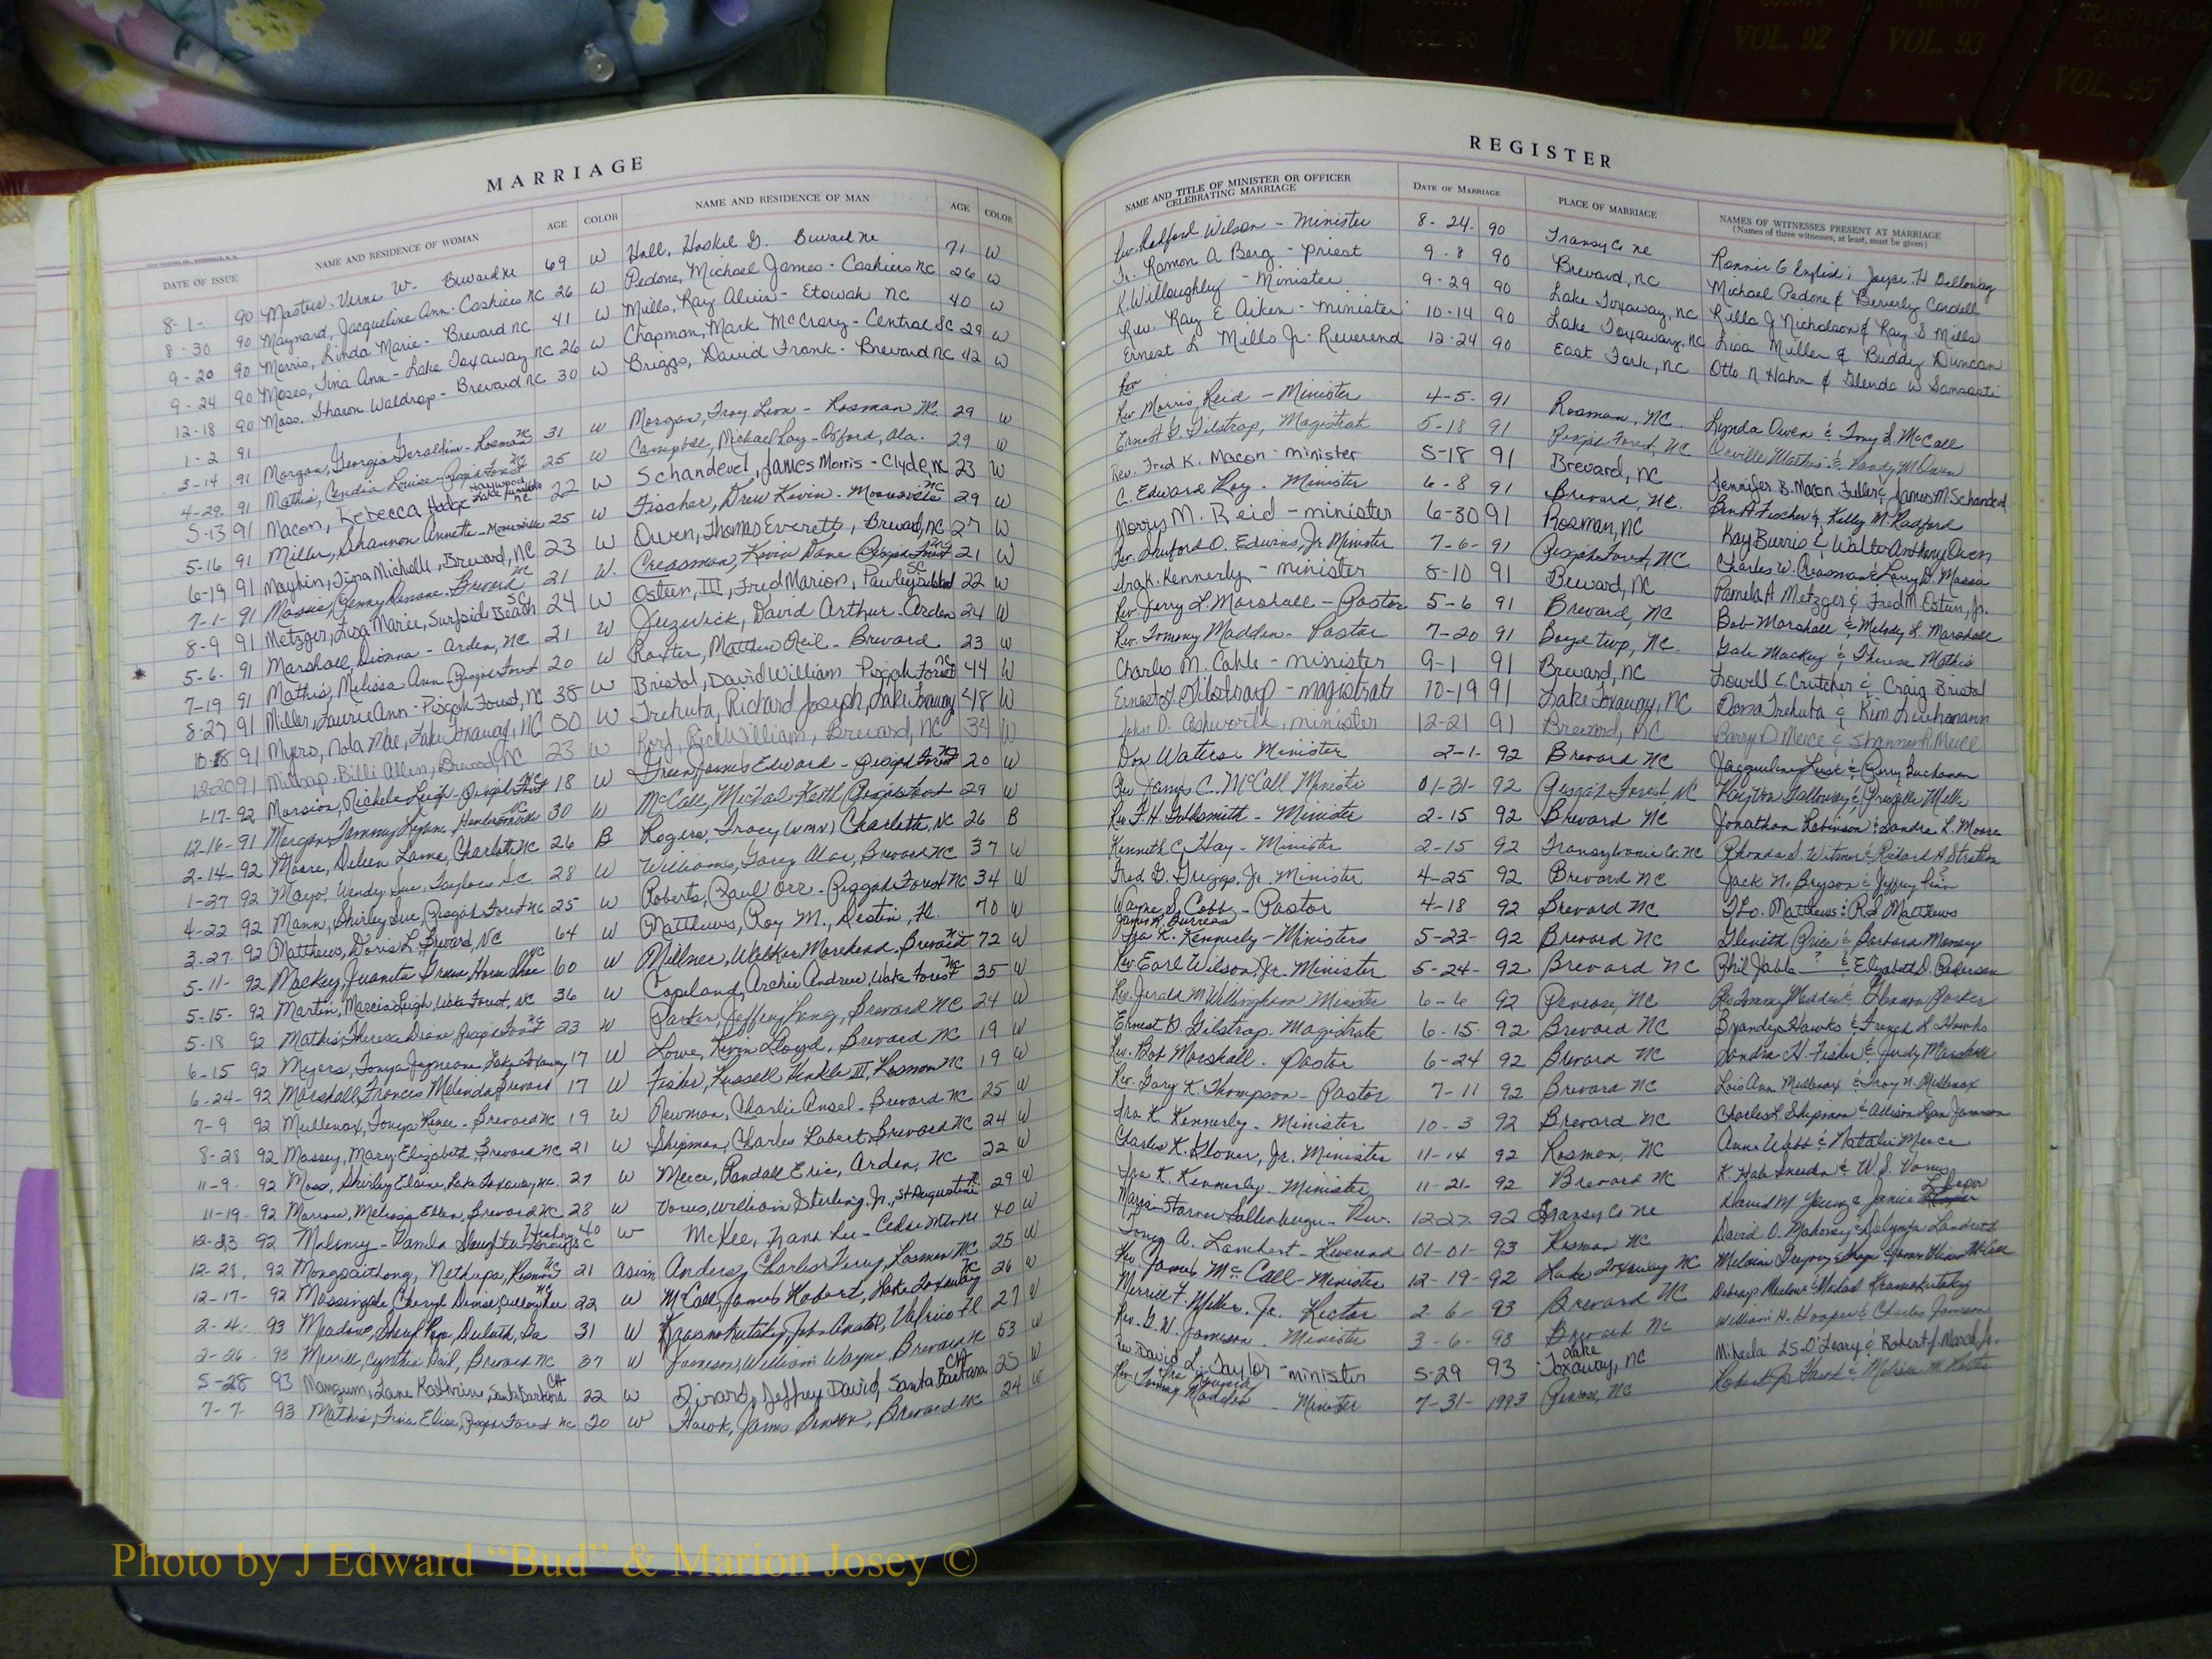 COUNTY COUNTY COUNTY TRANSYLVANIA COUNTY
VOL. 90 VOL. 91 VOL. 92 VOL. 93 VOL. 95
MARRIAGE
REGISTER
DATE OF ISSUE NAME AND RESIDENCE OF WOMAN AGE COLOR NAME AND RESIDENCE OF MAN AGE COLOR
NAME AND TITLE OF MINISTER OR OFFICER CELEBRATING MARRIAGE DATE OF MARRIAGE PLACE OF MARRIAGE NAMES OF WITNESSES PRESENT AT MARRIAGE
(Names of three witnesses, at least, must be given)
8-1- 90 Masters, Verna W. Brevard NC 69 W Hall, Haskel G. Brevard NC 71 W
8-30 90 Maynard, Jacqueline Ann - Cashiers NC 26 W Pedone, Michael James - Cashiers NC 26 W
9-20 90 Morris, Linda Marie - Brevard NC 41 W Mills, Ray Alvin - Etowah NC 40 W
9-24 90 Moses, Tina Ann - Lake Toxaway NC 26 W Chapman, Mark McCrary - Central SC 29 W
12-18 90 Moss, Sharon Waldrop - Brevard NC 30 W Briggs, David Frank - Brevard NC 42 W
1-2 91
3-14 91 Morgan, Georgia Geraldine - Rosman NC 31 W Morgan, Troy Leon - Rosman NC 29 W
4-29 91 Mathis, Cendia Louise - Pisgah Forest NC 25 W Campbell, Michael Ray - Oxford, Ala. 29 W
5-13 91 Macon, Rebecca Hodge 22 W Schandevel, James Morris - Clyde, NC 23 W
5-16 91 Miller, Shannon Annette - Mooresville 25 W Fischer, Drew Kevin - Mooresville NC 29 W
6-19 91 Mayhin, Tina Michelle, Brevard, NC 23 W Owen, Thomas Everett, Brevard, NC 27 W
7-1- 91 Massie, Jenny Denane - Brevard NC 21 W. Creasman, Kevin Dane Pisgah Forest NC 21 W
8-9 91 Metzger, Lisa Maree, Surfside Beach SC 24 W Osteen, III, Fred Marion, SC 22 W
5-6- 91 Marshall, Dionna - Arden, NC 21 W Juzwick, David Arthur - Arden 24 W
7-19 91 Mathis, Melissa Ann - Pisgah Forest 20 W Raxter, Matthew Neil - Brevard 23 W
8-27 91 Miller, Laurie Ann - Pisgah Forest, NC 38 W Bristol, David William - Pisgah Forest NC 44 W
10-18 91 Myers, Nola Mae, Lake Toxaway, NC 50 W Trekuta, Richard Joseph, Lake Toxaway 48 W
12-20 91 Millsap, Billi Allen, Brevard, NC 23 W Korf, Rick William, Brevard, NC 34 W
1-17-92 Marsion, Nichele Leigh - Pisgah Forest NC 18 W Green, James Edward - Pisgah Forest NC 20 W
12-16-91 Morgan, Tammy Lynn, Hendersonville NC 30 W McCall, Michael Keith, Pisgah Forest 29 W
2-14-92 Moore, Charlotte NC 26 B Rogers, Tracy (NMN) Charlotte, NC 26 B
1-27 92 Mayo, Wendy Sue, Taylors, S.C. 28 W Williams, Alan, Brevard NC 37 W
4-22 92 Mann, Shirley Sue, Pisgah Forest NC 25 W Roberts, Paul Orr - Pisgah Forest NC 34 W
3-27 92 Matthews, Doris L., Brevard, NC 64 W Matthews, Roy M., Destin, FL. 70 W
5-11- 92 Mackey, Juanita Horse Shoe NC 60 W Millner, Walker Morehead, Brevard NC 72 W
5-15- 92 Martin, Marcia Leigh, Wake Forest, NC 36 W Copeland, Archie Andrew, Wake Forest NC 35 W
5-18 92 Mathis, Theresa Diane, Pisgah Forest NC 23 W Parker, Jeffrey Brevard NC 24 W
6-15 92 Myers, Tonya Lake Toxaway 17 W Lowe, Kevin Lloyd, Brevard NC 19 W
6-24- 92 Marshall, Frances Melinda, Brevard 17 W Fisher, Russell Hinkle III, Rosman NC 19 W
7-9 92 Mullenax, Tonya Renee - Brevard NC 19 W Newman, Charlie Ansel - Brevard NC 25 W
8-28 92 Massey, Mary Elizabeth, Brevard NC 21 W Shipman, Charles Robert, Brevard NC 24 W
11-9. 92 Moss, Shirley Elaine, Lake Toxaway NC. 27 W Meece, Randall Eric, Arden, NC 22 W
11-19- 92 Morrow, Melissa Ellen, Brevard NC 28 W Vorus, William Sterling, Jr., St Augustine 29 W
12-23 92 Maloney - Pamela 40 W McKee, Frank Lee - Cedar Mtn NC 40 W
12-28. 92 Mongsaithong, Nathapa, Rosman NC 21 Asian Anders, Charles Terry, Rosman NC 25 W
12-17- 92 Massingale, Cheryl Denise, Cullowhee NC 22 W McCall, James Hobert, Lake Toxaway NC 26 W
2-4- 93 Meadow, Sheryl Duluth, Ga 31 W Krasnokutsky, John Anatol, Valrico Fl 27 W
2-26- 93 Merrill, Cynthia Gail, Brevard NC 37 W Jameson, William Wayne, Brevard NC 53 W
5-28 93 Mangum, Lane Kathrine, Santa Barbara CA 22 W Girard, Jeffrey David, Santa Barbara CA 25 W
7-7- 93 Mathis, Tina Elise, Pisgah Forest NC 20 W Hawk, James Brevard NC 24 W
Rev. Ralford Wilson - Minister 8-24- 90 Transy Co NC Ronnie G English; Joyce H Galloway
Fr. Ramon A Berg - Priest 9-8 90 Brevard, NC Michael Pedone & Beverly Cardell
K. Willoughby - Minister 9-29 90 Lake Toxaway, NC Rilla J Nicholson & Ray S Mills
Rev. Ray E Aiken - Minister 10-14 90 Lake Toxaway, NC Lisa Miller & Buddy Duncan
Ernest L Mills Jr. Reverend 12-24 90 East Fork, NC Otto N Hahn & Glenda W Sansosti
Rev
Rev Morris Reid - Minister 4-5- 91 Rosman, NC. Lynda Owen & Tony L McCall
Ernest G. Gilstrap, Magistrat 5-18 91 Pisgah Forest, NC Orville Mathis & Randy M Owen
Rev. Fred K. Macon - minister 5-18 91 Brevard, NC Jennifer B. Macon Fuller & James M. Schandevel
C. Edward Roy - Minister 6-8 91 Brevard, NC. Ben A Fischer & Kelly M. Radford
Morris M. Reid - minister 6-30 91 Rosman, NC Kay Burris & Walter Anthony Owen
Rev. Shuford O. Edwins, Jr. Minister 7-6- 91 Pisgah Forest, NC Charles W. Creasman & Larry D. Massa
Ira K. Kennerly - minister 8-10 91 Brevard, NC Pamela A Metzger & Fred M. Osteen, Jr.
Rev Jerry L. Marshall - Pastor 5-6 91 Brevard, NC Bob Marshall & Melody L. Marshall
Rev. Tommy Madden - Pastor 7-20 91 Boyd twp, NC. Gale Mackey & Theresa Mathis
Charles M. Cable - minister 9-1 91 Brevard, NC Lowell E. Crutcher & Craig Bristol
Ernest G Gilstrap - magistrate 10-19 91 Lake Toxaway, NC Dona Trekuta & Kim
John D. Ashworth, minister 12-21 91 Brevard, NC Barry D Meece & Shannon R. Meece
Don Waters Minister 2-1- 92 Brevard NC Jacqueline Lusk & Perry Buchanan
Rev James C. McCall Minister 01-31- 92 Pisgah Forest, NC Galloway & Priscilla Mills
Rev F. H. Goldsmith - Minister 2-15 92 Brevard NC Jonathan Robinson & Sandra L. Moore
Kenneth C. Hay - Minister 2-15 92 Transylvania Co. NC Rhonda S. Witmer & Richard A Stratton
Fred G. Griggs, Jr. Minister 4-25 92 Brevard NC Jack N. Bryson & Jeffrey
Wayne S. Cobb - Pastor 4-18 92 Brevard NC Matthews & R.S Matthews
James R. Burress
Ira K. Kennerly - Ministers 5-23- 92 Brevard NC Price & Barbara
Rev Earl Wilson, Jr. Minister 5-24- 92 Brevard NC Phil ? & Elizabeth D. Pedersen
Rev. Jerald M Willingham Minister 6-6 92 Penrose, NC Rev Tommy Madden & Parker
Ernest G. Gilstrap. Magistrate 6-15- 92 Brevard NC Hawks & Hawks
Rev. Bob Marshall. Pastor 6-24 92 Brevard NC Sandra H. Fisher & Judy Marshall
Rev. Gary K. Thompson - Pastor 7-11 92 Brevard NC Lois Ann Mullenax & Troy N. Mullenax
Ira K. Kennerly - Minister 10-3 92 Brevard NC Charles L Shipman & Allison Jameson
Charles K. Stoner, Jr. Minister 11-14 92 Rosman, NC Anna Webb & Natalie Meece
Ira K. Kennerly - Minister 11-21- 92 Brevard NC K. Hale Sneeden & W. S. Vorus
Marcia Starnes Sallenberger - Rev. 12-27 92 Transy Co NC David M Young & Janice
A. Lambert - Reverend 01-01- 93 Rosman NC David O. Mahoney &
Rev. James McCall - Minister 12-19- 92 Lake Toxaway NC
Merrill F. Miller, Jr. Rector 2-6- 93 Brevard NC
Rev. G. W. Jameson. Minister 3-6- 93 Brevard NC William H. Hooper & Charles Jameson
Rev David L. Taylor - minister 5-29 93 Lake Toxaway, NC Mikela O'Leary & Robert J. March, Jr.
Rev. Tommy Madden - Minister 7-31- 1993 Penrose, NC
Photo by J Edward “Bud” & Marion Josey ©